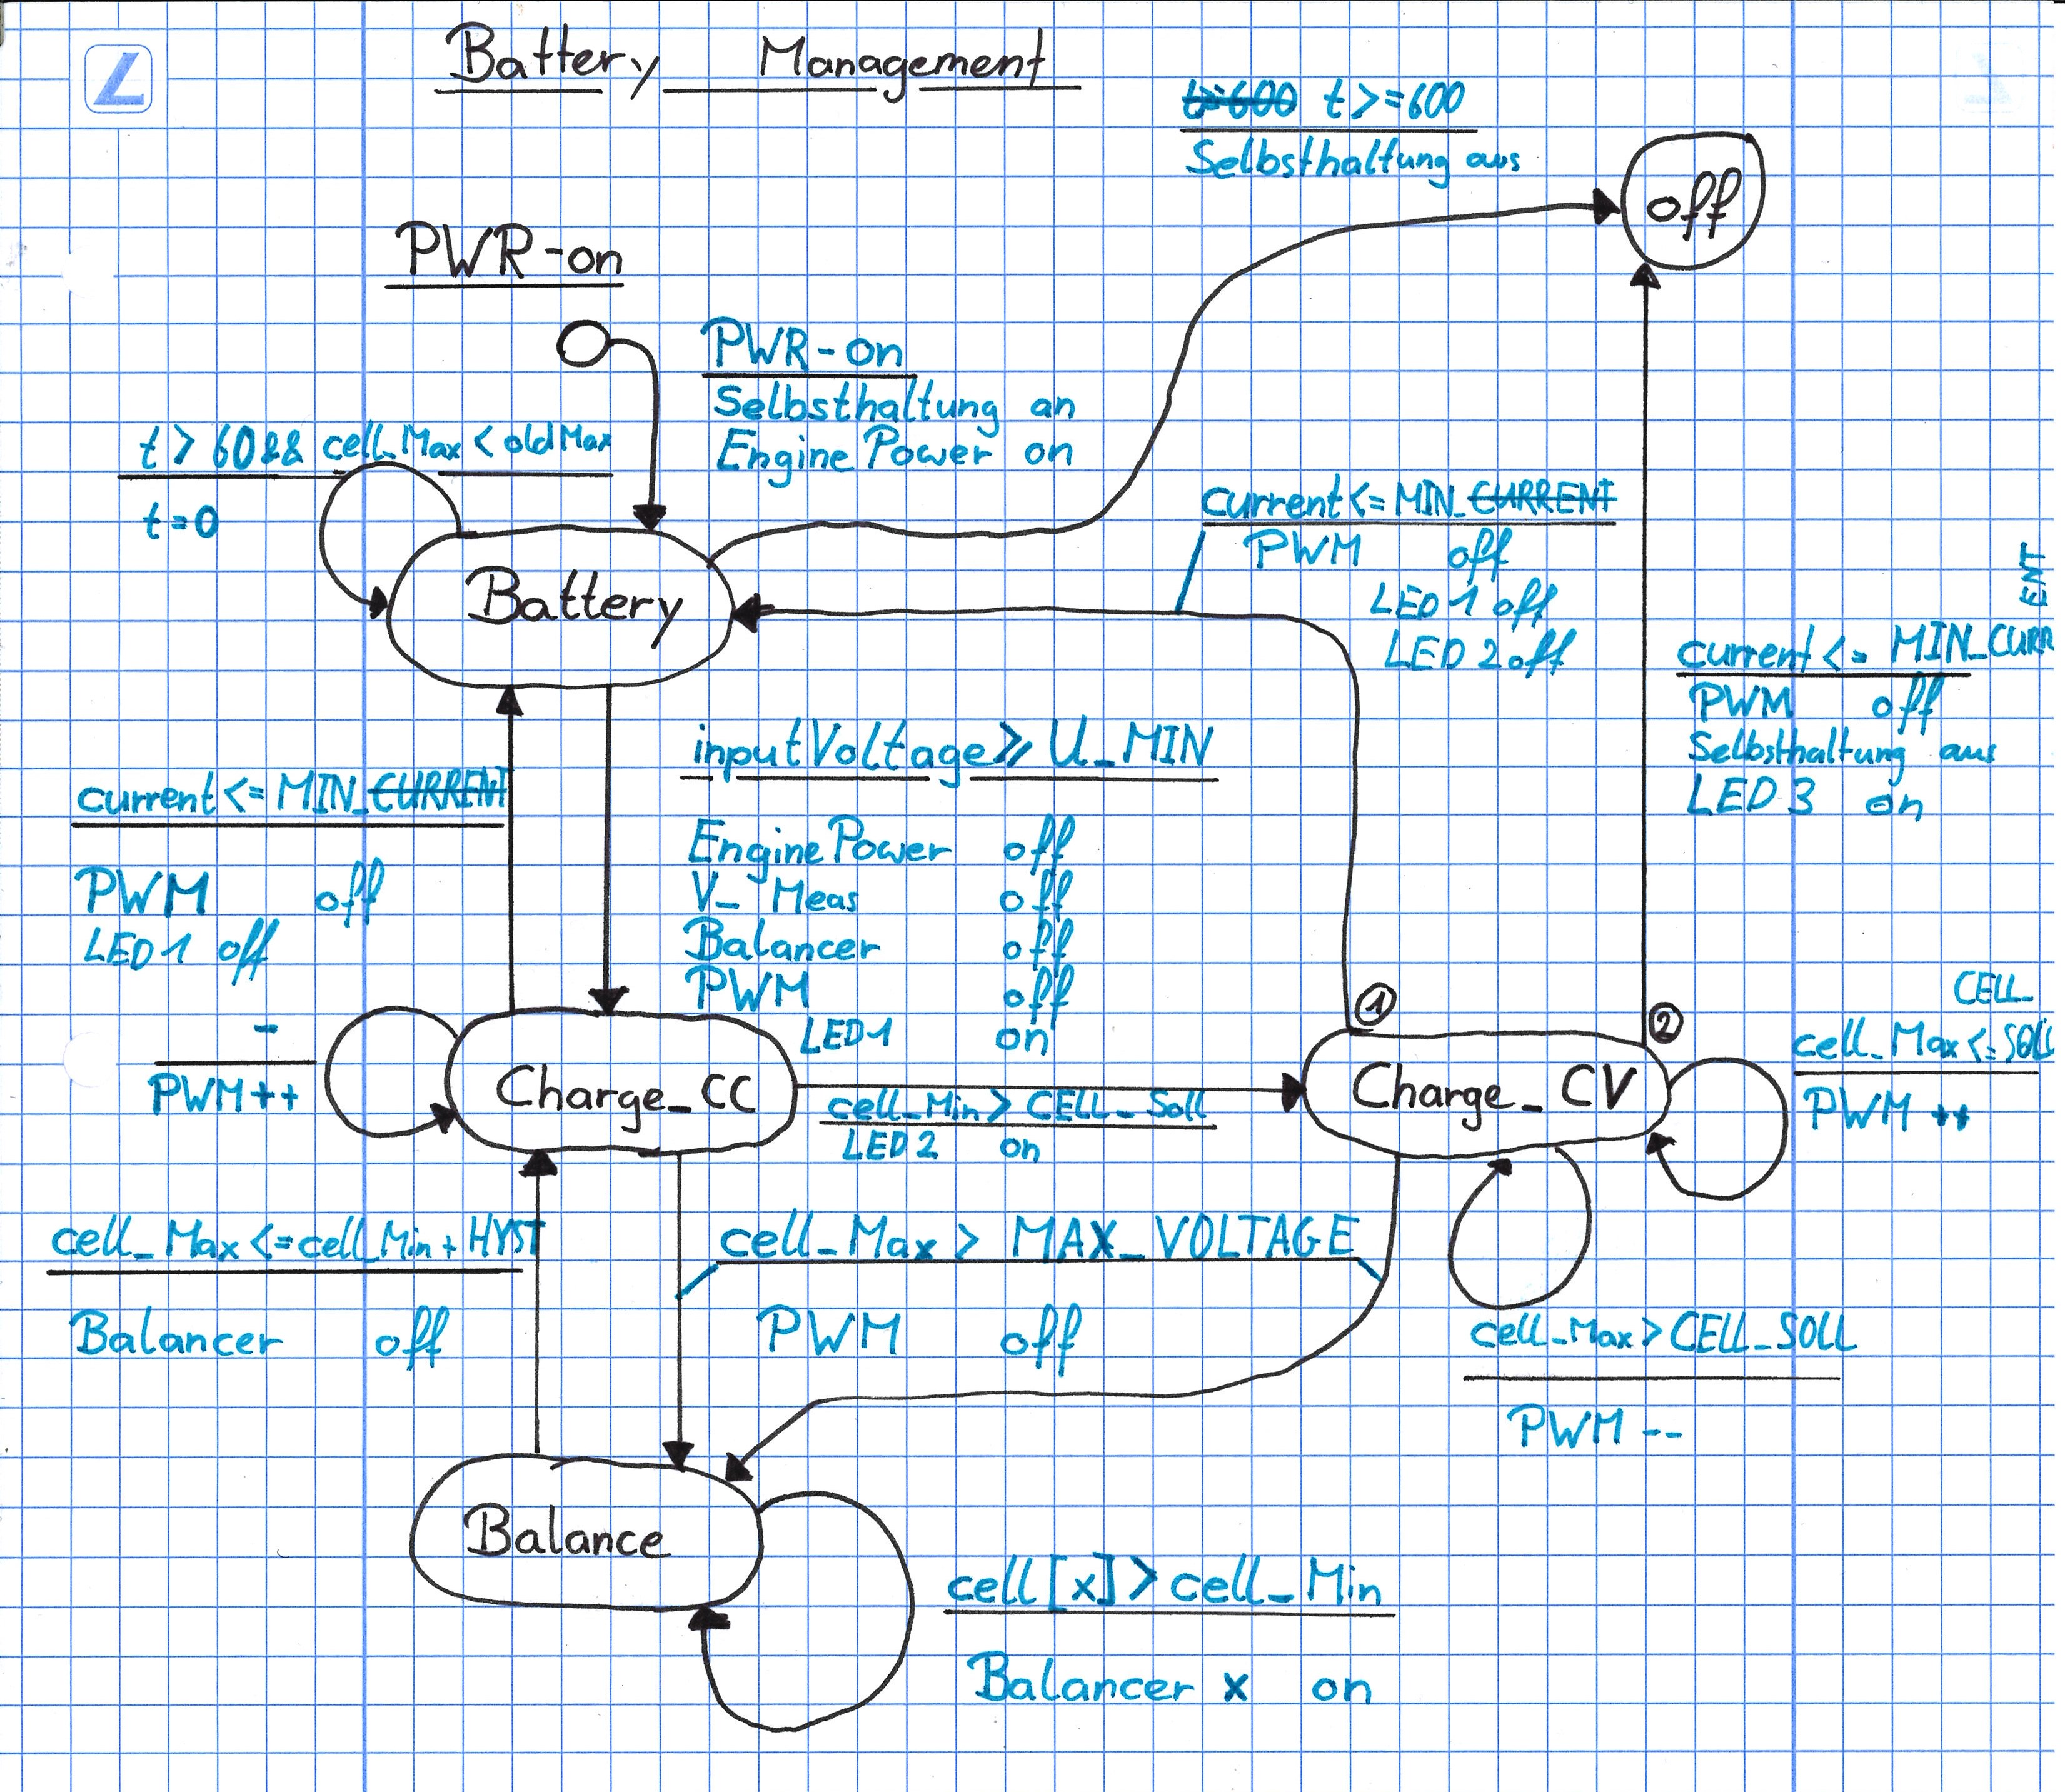 Battery Management
t>=600 t>=600
Selbsthaltung aus
off
PWR-on
PWR-on
Selbsthaltung an
Engine Power on
t > 60 && cell_Max < oldMax
t=0
Battery
current <= MIN_CURRENT
PWM off
LED 1 off
LED 2 off
current <= MIN_CURR
ENT
PWM off
Selbsthaltung aus
LED 3 on
inputVoltage >= U_MIN
Engine Power off
V_Meas off
Balancer off
PWM off
LED1 on
current <= MIN_CURRENT
PWM off
LED 1 off
-
PWM++
Charge_CC
cell_Min > CELL_Soll
LED 2 on
1
2
Charge_CV
CELL_
cell_Max <= SOLL
PWM ++
cell_Max <= cell_Min + HYST
Balancer off
cell_Max > MAX_VOLTAGE
PWM off
cell_Max > CELL_SOLL
PWM --
Balance
cell [x] > cell_Min
Balancer x on